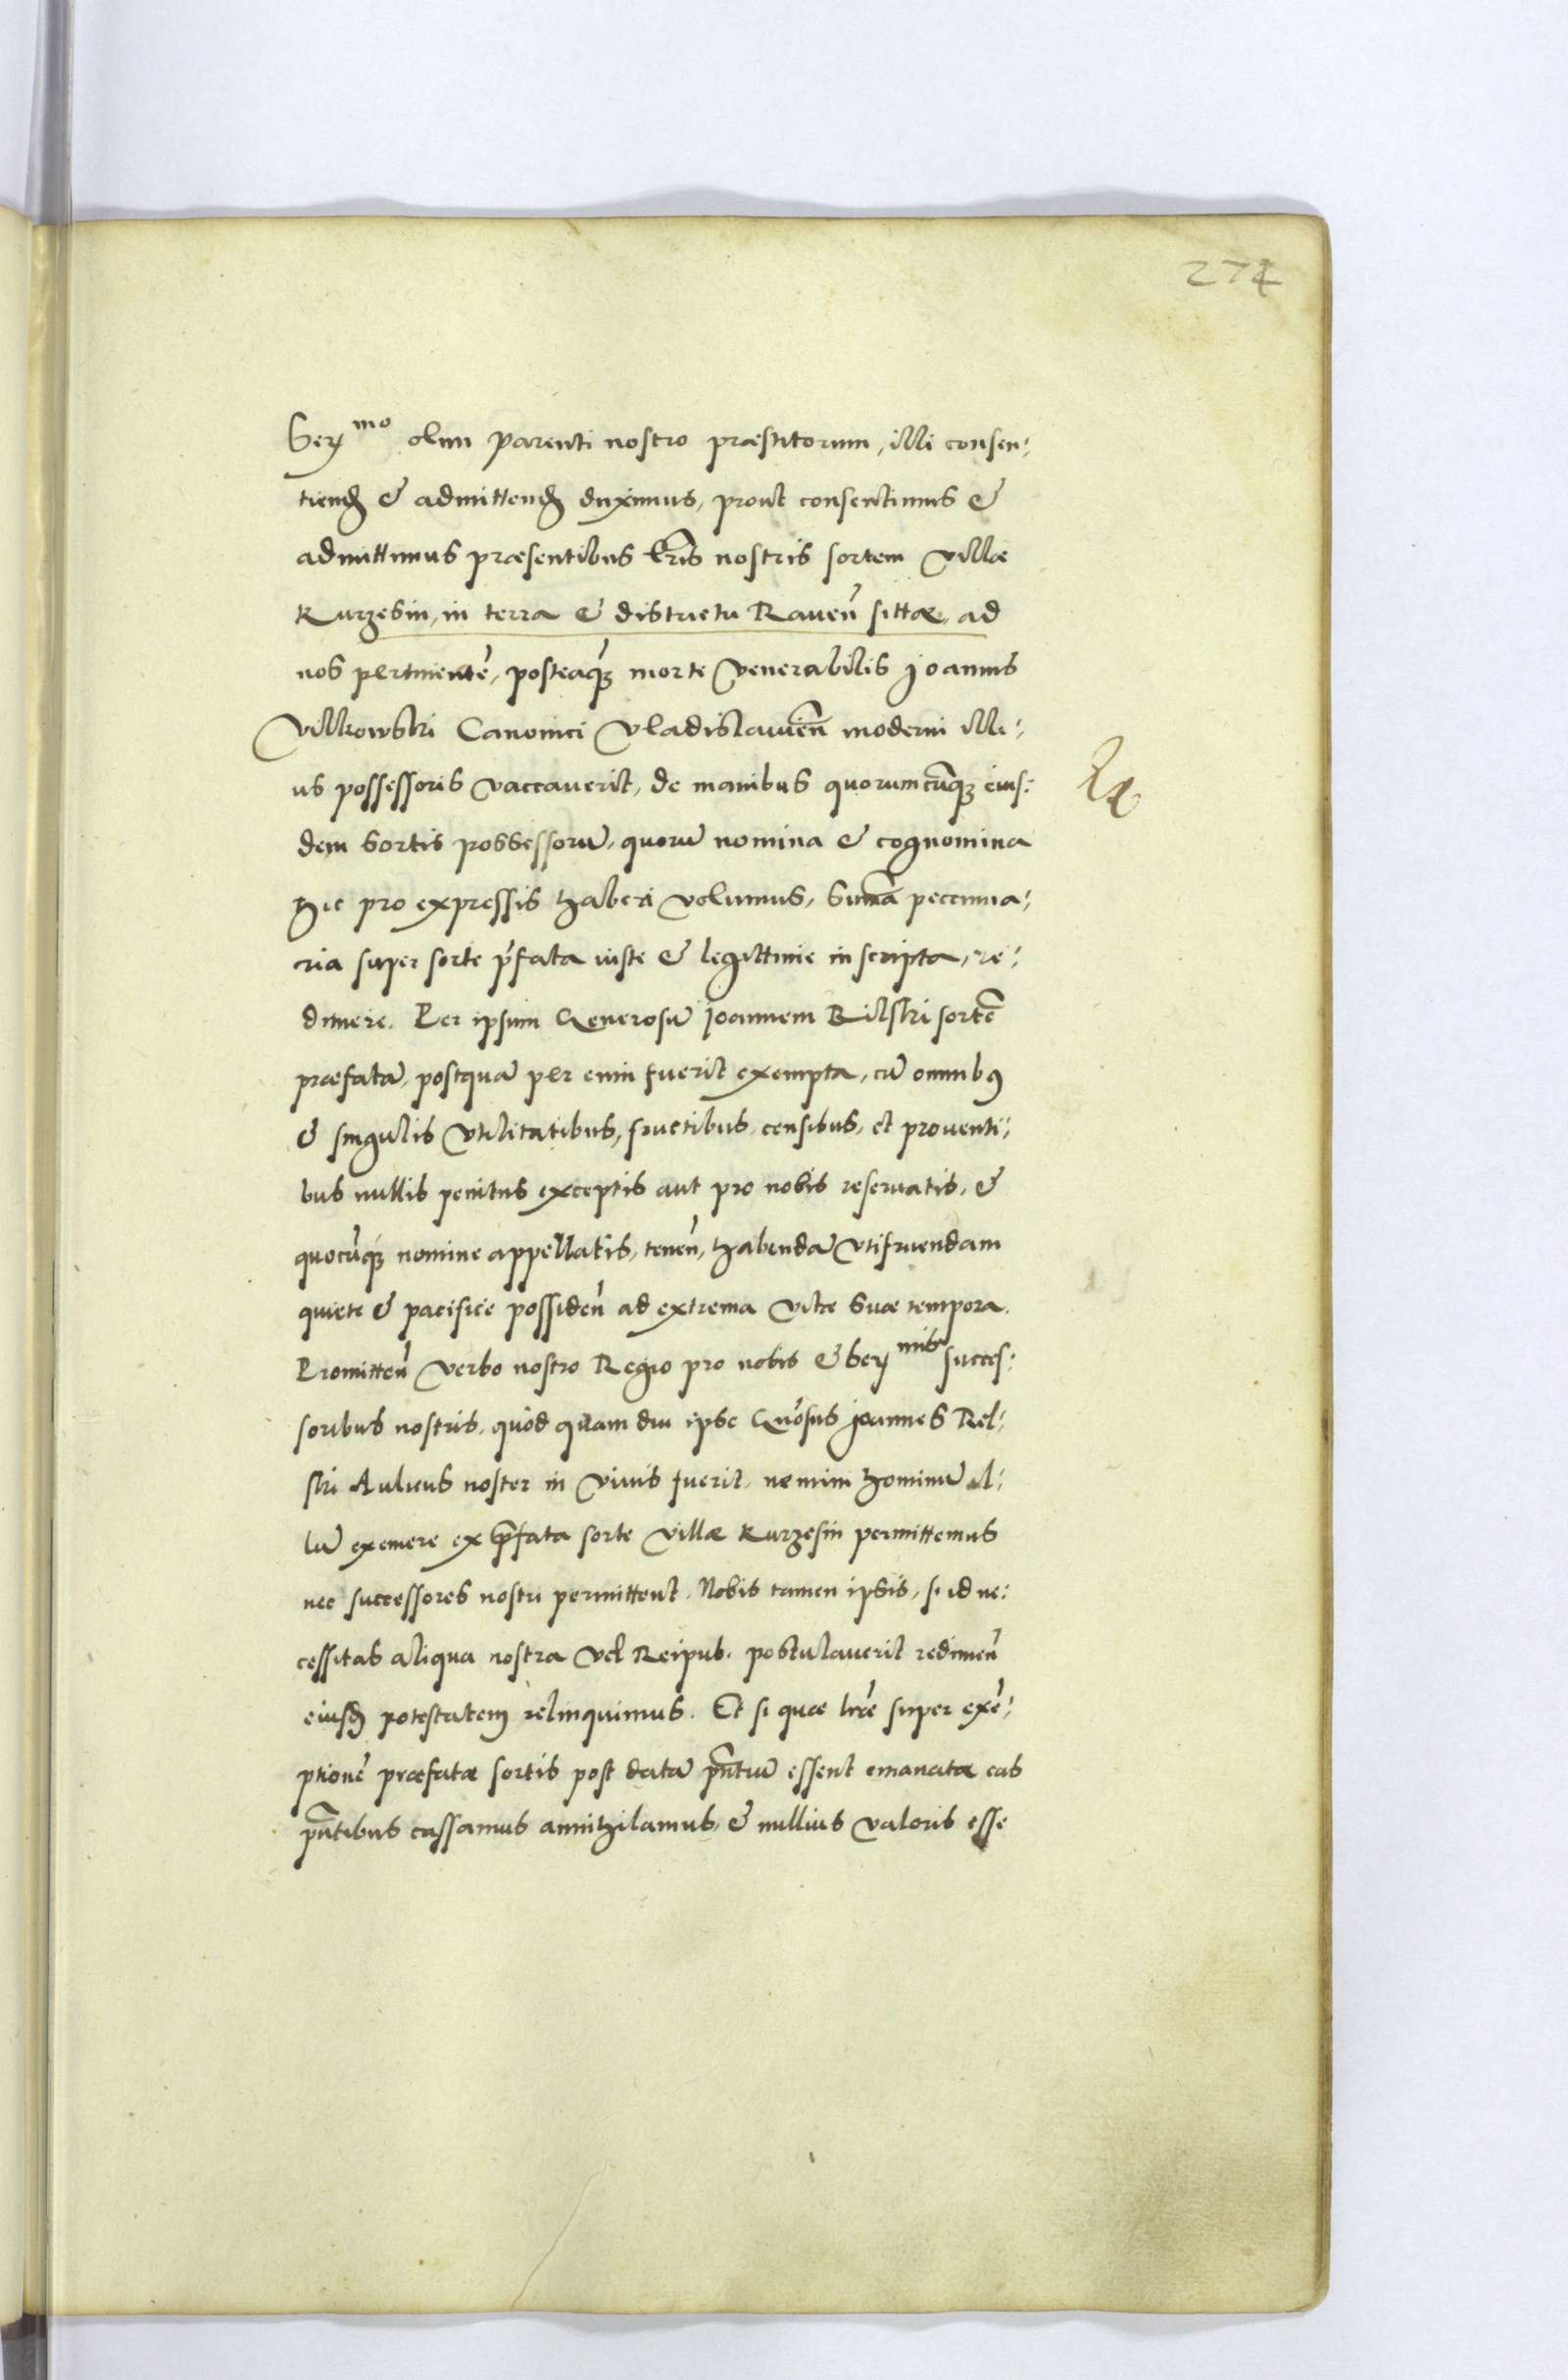 274
Ser^mo olim Parenti nostro præstitorum, illi consen:
tiend & admittend duximus, prout consentimus &
admittimus præsentibus l͠ris nostris sortem Villæ
Kurzesin, in terra & districtu Raueñ sittæ, ad
nos pertinentē, posteaq̃ꝫ morte Venerabilis Joannis
Vilkowski Canonici Vladislauień moderni illi:
us possessoris vaccauerit, de manibus quorumcūqꝫ eius:
dem sortis possessorū, quorū nomina & cognomina
hic pro expressis haberi volumus, sum̃a peccunia:
ria super sorte p̃fata iuste & legittime inscripta, re:
dimere. Per ipsum Generosū Joannem Rilski sortē
præfatā, postquā per eum fuerit exempta, cū omnibꝰ
& singulis vtilitatibus, fructibus, censibus, et prouenti:
bus nullis penitus exceptis aut pro nobis reseruatis, &
quocūqꝫ nomine appellatis, teneñ, habendā vtifruendam
quiete & pacifice possideñ ad extrema vitæ suæ tempora.
Promitteñ verbo nostro Regio pro nobis & Ser^mis succes:
soribus nostris, quòd quam diu ipse Gñosus Joannes Ril:
ski Aulicus noster in viuis fuerit, nemini hominū il:
lū exemere ex p̃fata sorte villæ Kurzesin permittemus
nec successores nostri permittent. Nobis tamen ipsis, si id ne:
cessitas aliqua nostra vel Reipub. postulauerit redimeñ
eiusd potestatem relinquimus. Et si quæ l̃ræ super exē:
ptionē præfatæ sortis post datā p̃ntiū essent emanatæ eas
p̃ntibus cassamus annihilamus, & nullius valoris esse